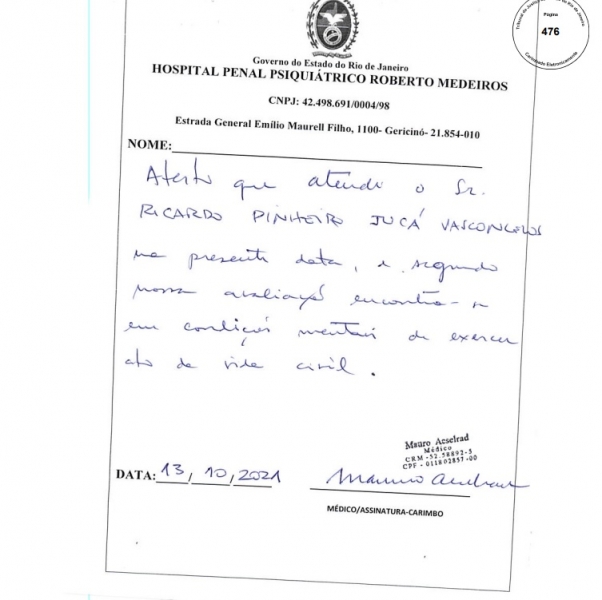 Tribunal de Justiça do Estado do Rio de Janeiro
Página
476
Carimbado Eletronicamente
Governo do Estado do Rio de Janeiro
HOSPITAL PENAL PSIQUIÁTRICO ROBERTO MEDEIROS
CNPJ: 42.498.691/0004/98
Estrada General Emílio Maurell Filho, 1100- Gericinó- 21.854-010
NOME:
Atesto que atendo o Sr.
RICARDO PINHEIRO JUCÁ VASCONCELOS
na presente data, e segundo
nossa avaliação encontra-se
em condições mentais de exercer
ato da vida civil.
Mauro Acselrad
Médico
CRM -52.58892-5
CPF - 011802857-00
DATA: 13/10/2021
Mauro Acselrad
MÉDICO/ASSINATURA-CARIMBO